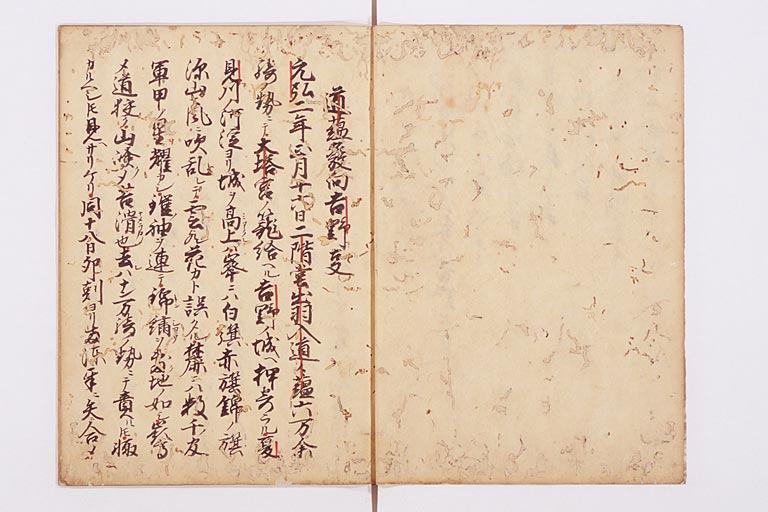 道蘊發向吉野事
元弘二年三月十六日二階堂出羽入道々蘊六万余
騎ノ勢ニテ大塔宮ノ籠給ヘル吉野ノ城ヘ押寄ラル事
見川ノ河淀ヨリ城ヲ高上ハ峯ニハ白旗赤旗錦ノ旗
深山ノ風ニ吹乱レテ雲カ花カト誤タル麓ニハ数千友
軍甲ノ星耀カシ鎧袖ヲ連テ錦繍ヲ地ノ如シ
道狭山ノ苔滑也去ハ十万騎ノ勢ニテ責ヘルトモ
カルヘシトモ見サリケリ同十八日卯刻ヨリ矢合メ